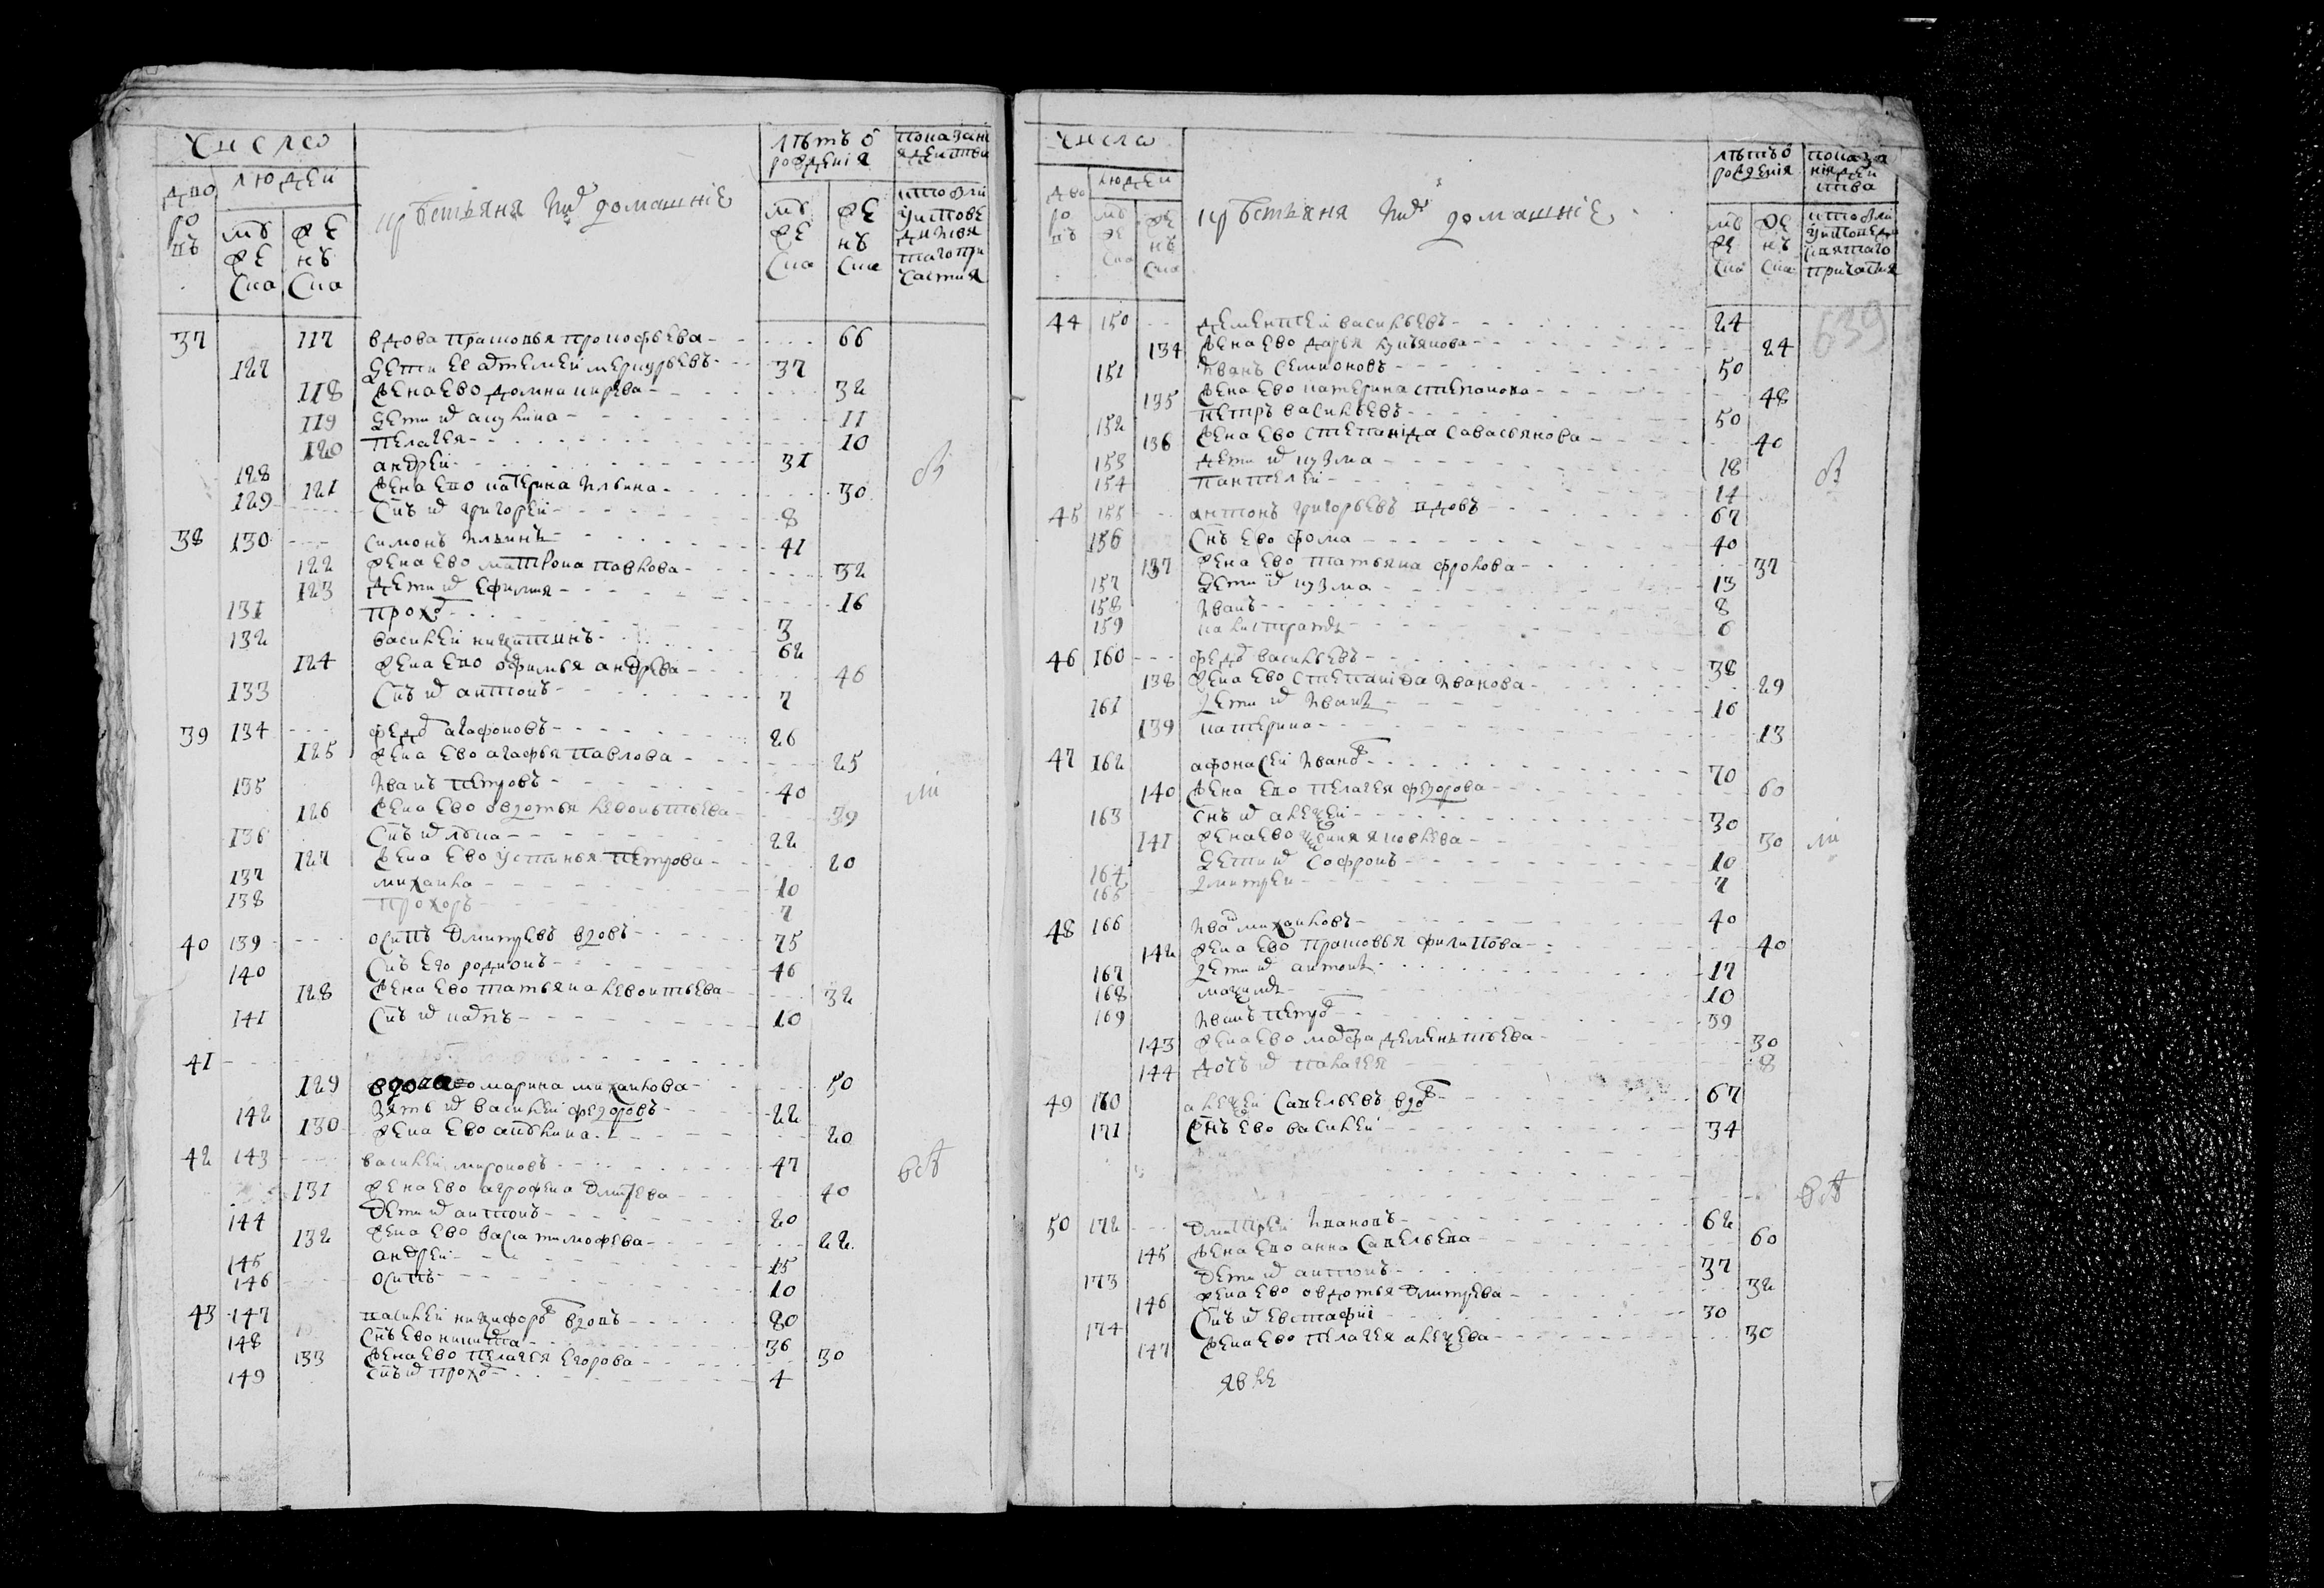 Число
людей
дво
ро
въ
муже
ска
жен
ска
крестьяня и домашніе
лѣтъ о
рожденія
показан
я действи
37 117 вдова прасковья прокофьева 66
127 дети ее артемей меркурьевъ 37
118 жена ево домна кирева 32
119 дети их акулина 11
120 пелагея 10
128 андрей 31
129 121 жена ево катерина ильина 30
снъ их григорей 8
38 130 симонъ ильинъ 41
122 жена ево матрона павлова 32
123 дети их ефимия 16
131 прохор 3
132 василей никитинъ 62
124 жена ево офимья андрева 46
133 снъ их антонъ 7
39 134 федор агафоновъ 26
125 жена ево агафья павлова 25
135 иванъ петровъ 40
126 жена ево овдотья левонтьева 39
136 снъ их лука 22
127 жена ево устинья петрова 20
137 михаила 10
138 прохоръ 7
40 139 осипъ дмитревъ вдовъ 75
140 снъ его родионъ 46
128 жена ево татьяна левонтьева 32
141 снъ их карпъ 10
41
129 вдова марина михаилова 50
142 зять их василей федоровъ 22
130 жена ево акулина 20
42 143 василей мироновъ 47
131 жена ево агрофена дмитрева 40
144 дети их антонъ 20
132 жена ево васа тимофева 22
145 андрей 15
146 осипъ 10
43 147 василей никифоров вдовъ 80
148 снъ ево никита 36
133 жена ево пелагея егорова 30
149 снъ их прохор 4
Число
людей
дво
ро
въ
муже
ска
жен
ска
крестьяня и домашніе
лѣтъ о
рожденія
показа
ния дей
ства
639
44 150 дементей васильевъ 24
134 жена ево дарья лукьянова 24
151 иванъ семионовъ 50
135 жена ево катерина степанова 48
152 петръ васильевъ 50
136 жена ево степанида савасьянова 40
153 дети их кузма 18
154 пантелей 14
45 155 антонъ григорьевъ вдовъ 67
156 снъ ево фома 40
137 жена ево татьяна фролова 37
157 дети их кузма 13
158 иванъ 8
159 калистратъ 6
46 160 федор васильевъ 38
138 жена ево степанида иванова 29
161 дети их иванъ 16
139 катерина 13
47 162 афонасей иванов 70
140 жена ево пелагея федорова 60
163 снъ их алексей 30
141 жена ево ксения яковлева 30
164 дети их софронъ 10
165 дмитрей 7
48 166 иван михаиловъ 40
142 жена ево прасковья филипова 40
167 дети их антонъ 17
168 максимъ 10
169 иванъ петров 39
143 жена ево марфа деменьтьева 30
144 дочь их палагея 8
49 170 алексей савельевъ вдов 67
171 снъ ево василей 34
50 172 дмитрей ивановъ 62
145 жена ево анна савельева 60
173 дети их антонъ 37
146 жена ево овдотья дмитрева 32
174 снъ их евстафий 30
147 жена ево пелагея алексева 30